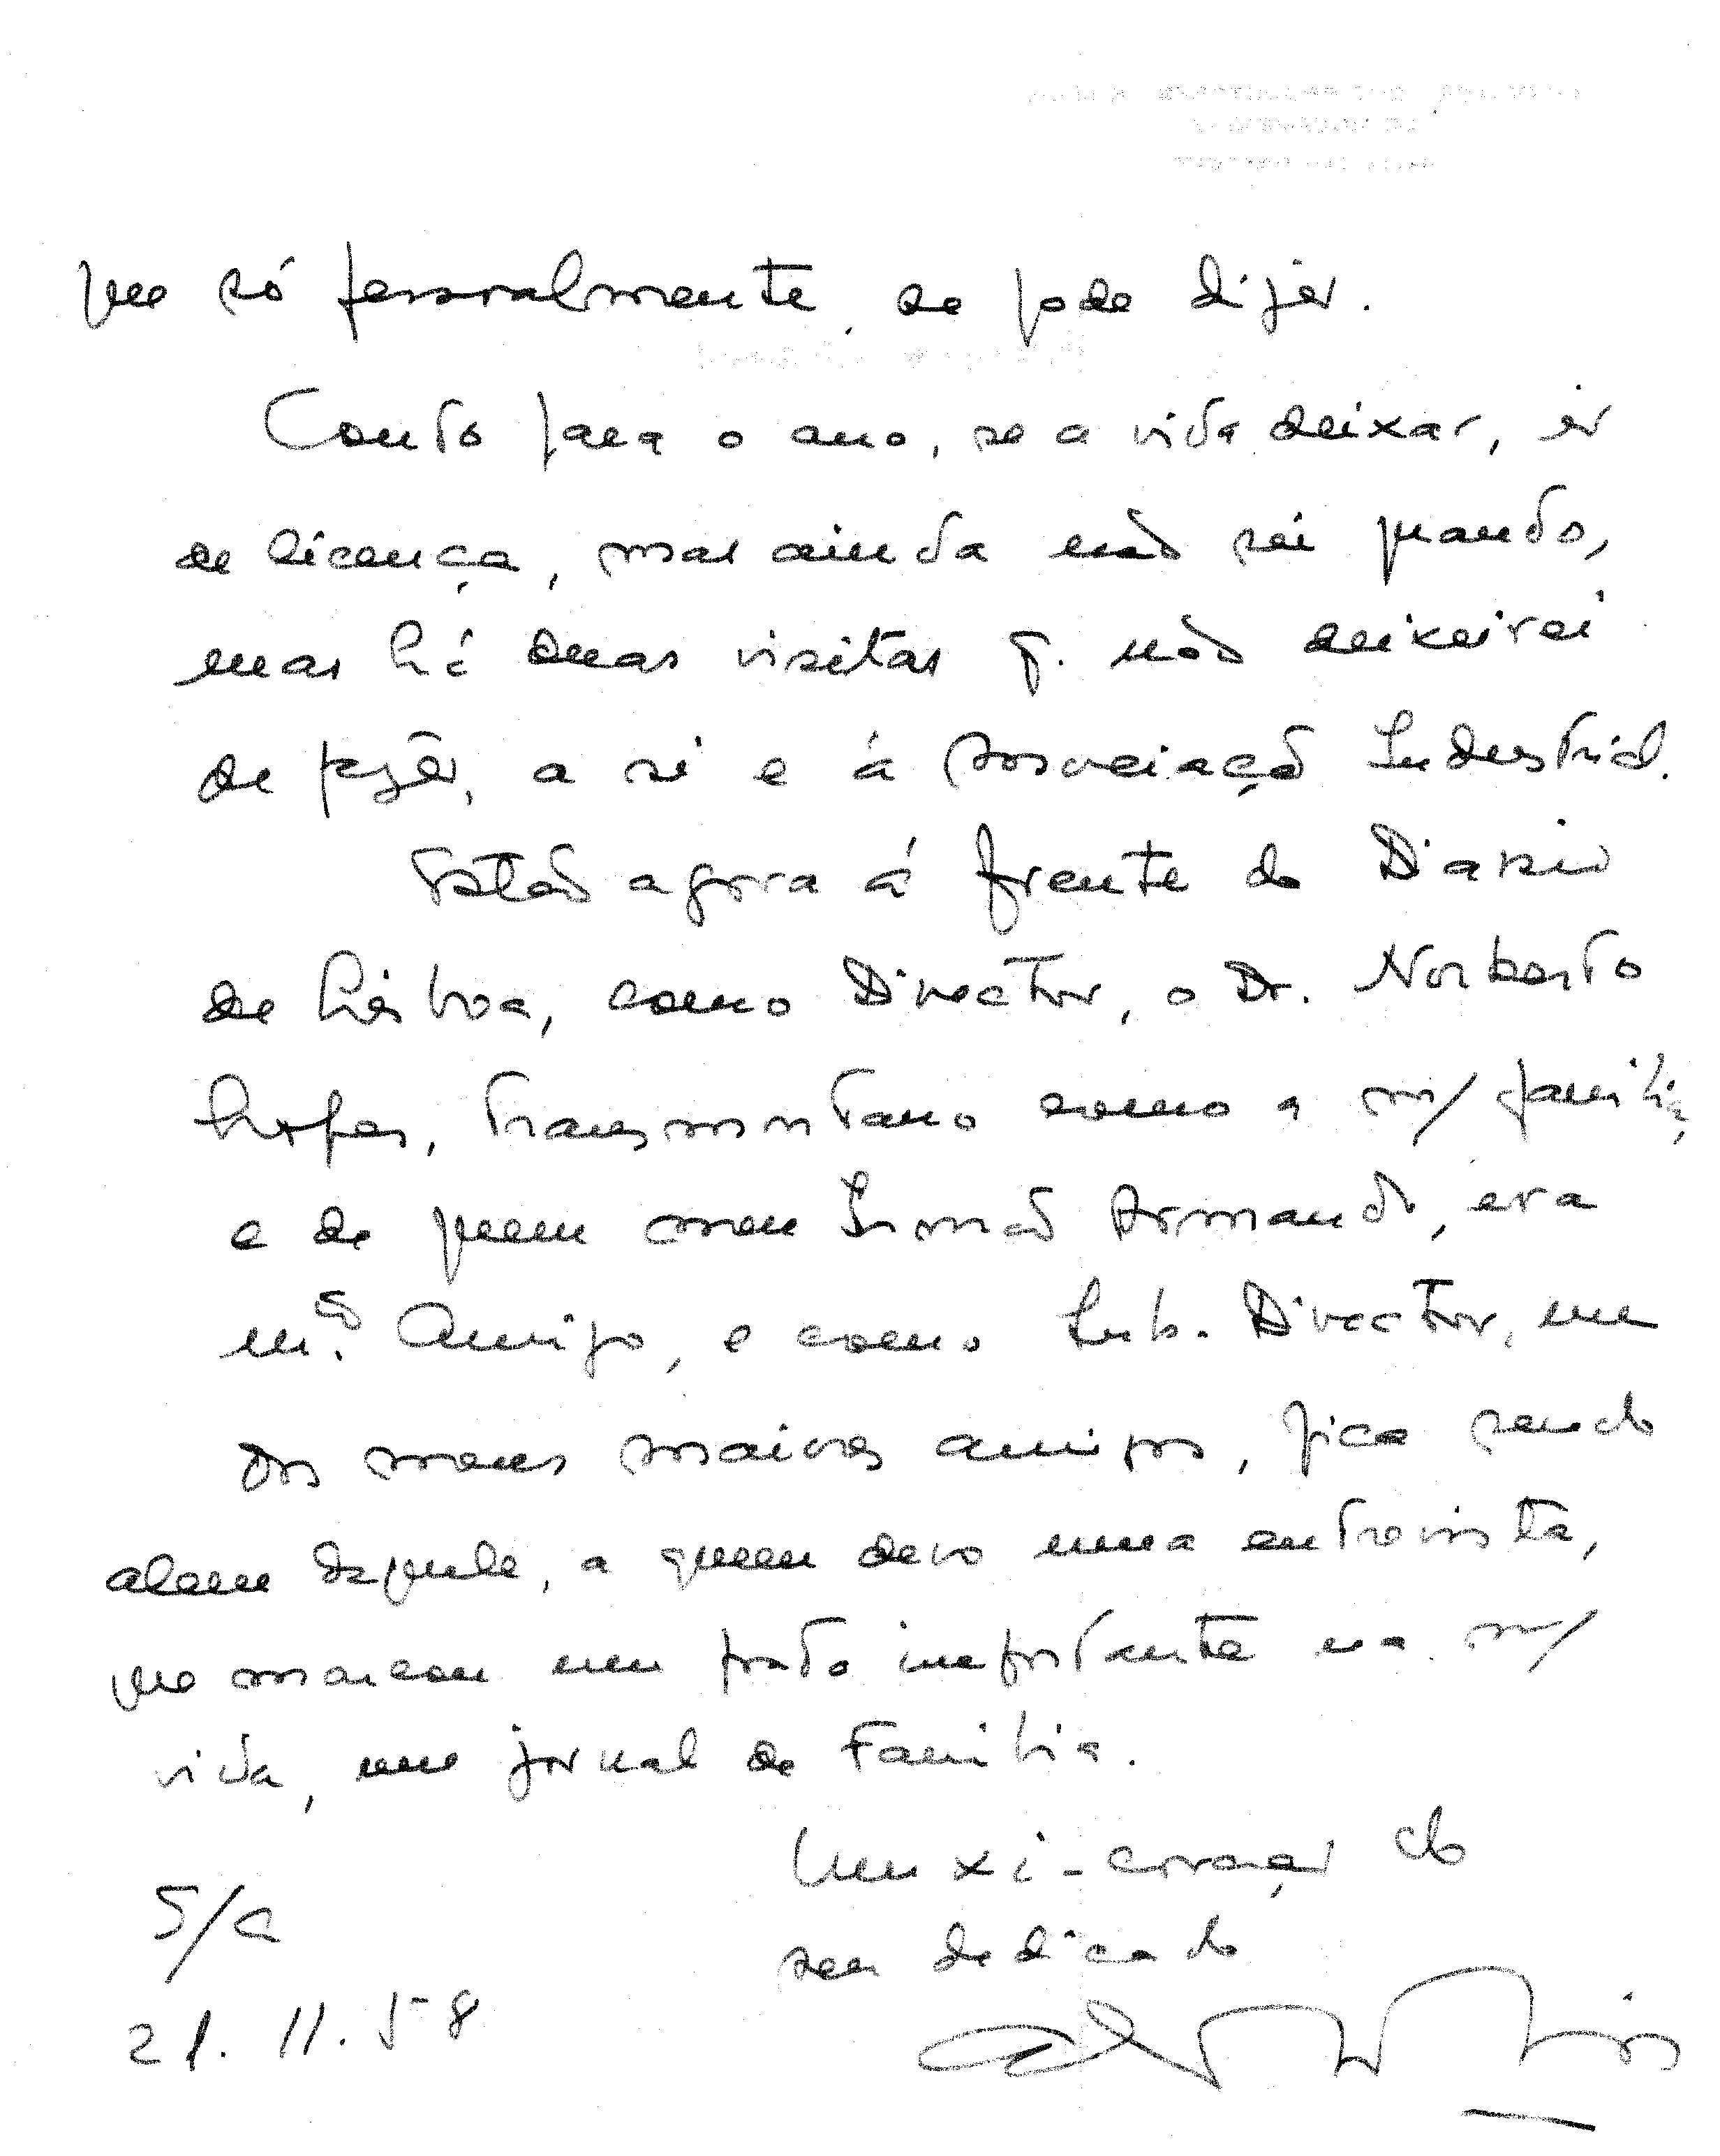 que só pessoalmente se pode dizer.
Conto para o ano, se a vida deixar, ir
de licença, mas ainda não sei quando,
mas há duas visitas q. não deixarei
de fazêr, a si e á Associação Industrial.
Estão agora á frente do Diario
de Lisboa, como Director, o Dr. Norberto
Lopes, transmontano como a m/ familia,
e de quem meu Irmão Armando, era
m.to Amigo, e como Sub. Director, um
dos meus maiores amigos, fica sendo
alem daquele, a quem devo uma entrevista,
que marcou um ponto importante na m/
vida, um jornal de Familia.
Um xi-coração do
seu dedicado
S/C
21.11.58